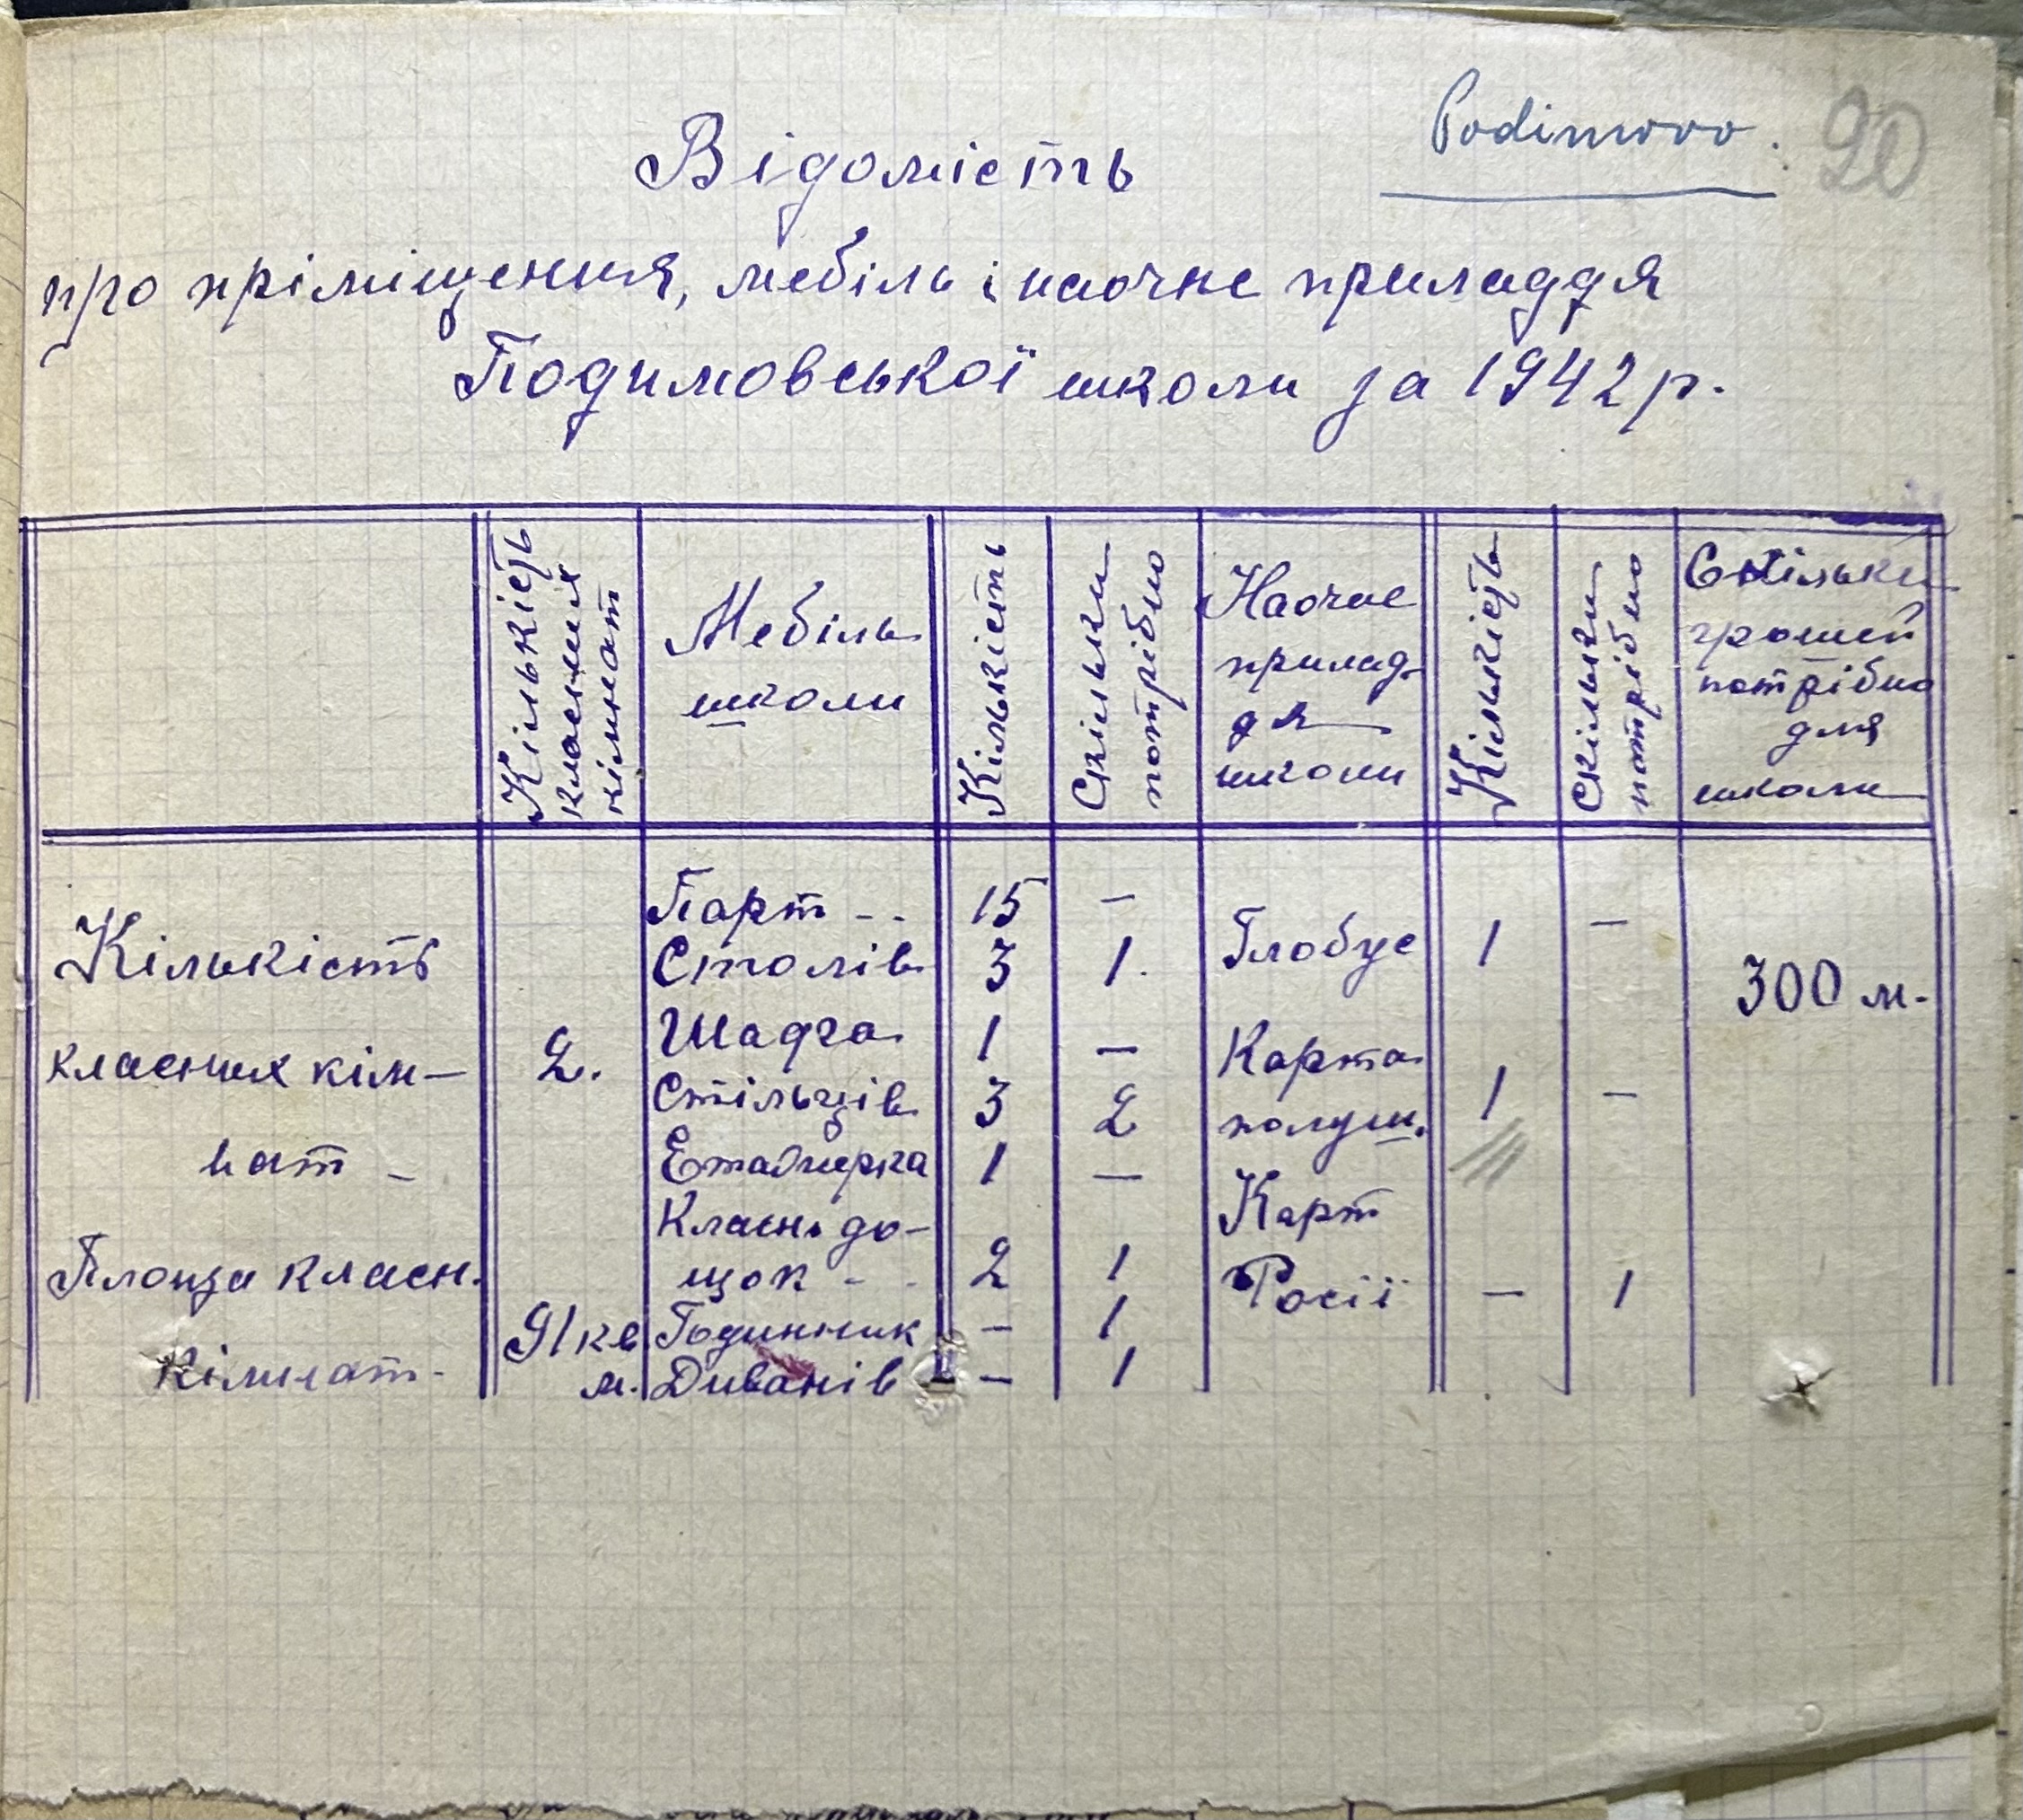 Podimowo.
20
Відомість
про пріміщення, мебіль і наочне приладдя
Подимовської школи за 1942 р.
Кількість класних кімнат
Мебіль школи
Кількість
Скільки потрібно
Наочне прилад-дя школи
Кількість
Скільки потрібно
Скільки грошей потрібно для школи
Парт - - 15 –
Кількість Столів 3 1. Глобус 1 – 300 м.
Шафа 1 –
класних кім– 2. Карта
Стільців 3 2 полуш. 1 –
нат – Етажерка 1 –
Класн. до– Карт
Площа класн. щок - - 2 1 Росії – 1
91 кв Годинник – 1
кімнат- м. Диванів – 1